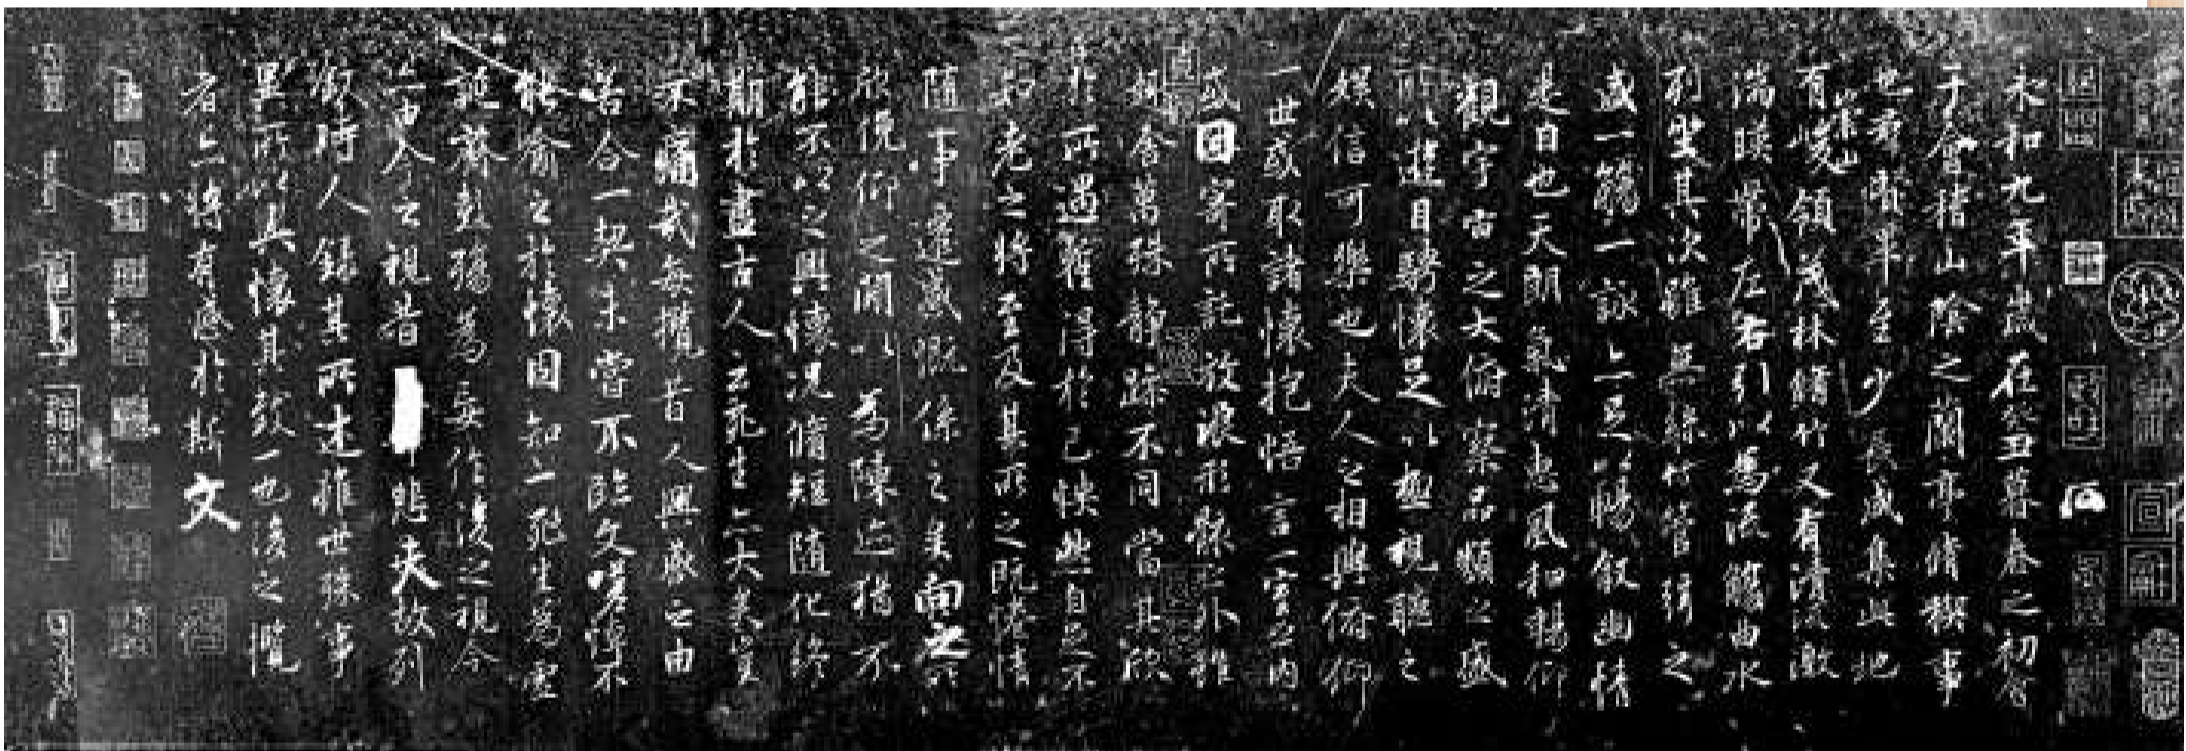 永和九年歲在癸丑暮春之初會
于會稽山陰之蘭亭脩稧事
也羣賢畢至少長咸集此地
有崇山峻領茂林脩竹又有清流激
湍暎帶左右引以為流觴曲水
列坐其次雖無絲竹管絃之
盛一觴一詠亦足以暢敘幽情
是日也天朗氣清惠風和暢仰
觀宇宙之大俯察品類之盛
所以遊目騁懷足以極視聽之
娛信可樂也夫人之相與俯仰
一世或取諸懷抱悟言一室之內
或因寄所託放浪形骸之外雖
趣舍萬殊靜躁不同當其欣
於所遇蹔得於己怏然自足不
知老之將至及其所之既惓情
隨事遷感慨係之矣向之所
欣俛仰之閒以為陳迹猶不
能不以之興懷況脩短隨化終
期於盡古人云死生亦大矣豈
不痛哉每攬昔人興感之由
若合一契未嘗不臨文嗟悼不
能喻之於懷固知一死生為虛
誕齊彭殤為妄作後之視今
亦由今之視昔 悲夫故列
敘時人錄其所述雖世殊事
異所以興懷其致一也後之攬
者亦將有感於斯文